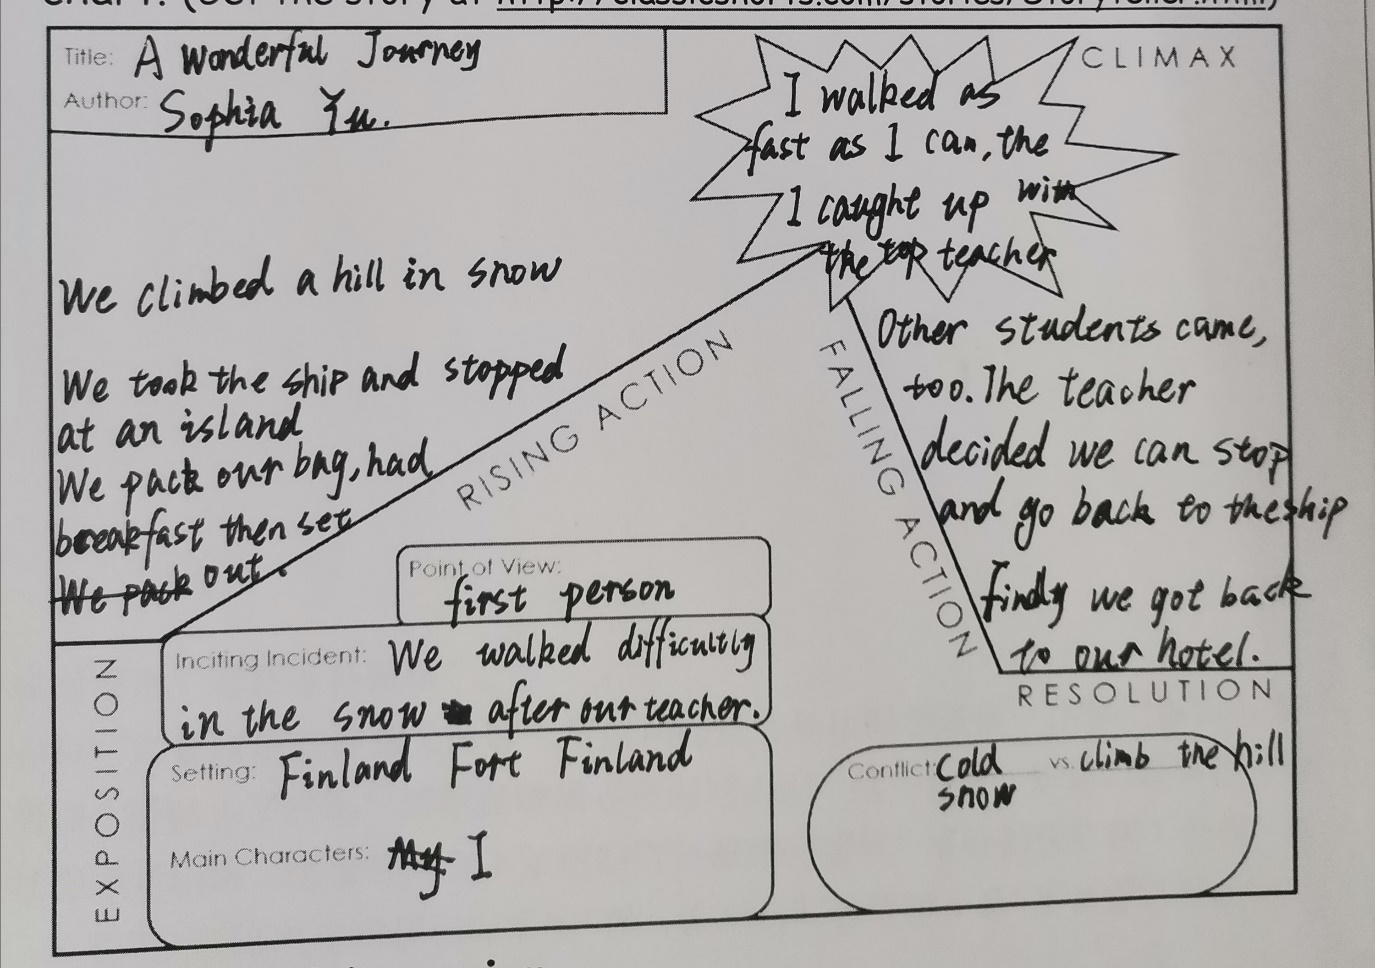 Title: A Wonderful Journey
Author: Sophia Yu.
CLIMAX
I walked as
fast as I can, the
I caught up with
the top teacher
We climbed a hill in snow
We took the ship and stopped
at an island
We pack our bag, had
breakfast then set
We pack out.
RISING ACTION
FALLING ACTION
Other students came,
too. The teacher
decided we can stop
and go back to the ship
findly we got back
to our hotel.
RESOLUTION
Point of View:
first person
Inciting Incident: We walked difficultly
in the snow after our teacher.
EXPOSITION
Setting: Finland Fort Finland
Main Characters: My I
Conflict: Cold vs. climb the hill
snow